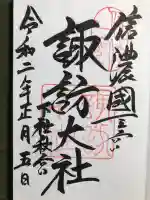 信濃國一之宮
諏訪大社
下社秋宮
令和二年正月五日